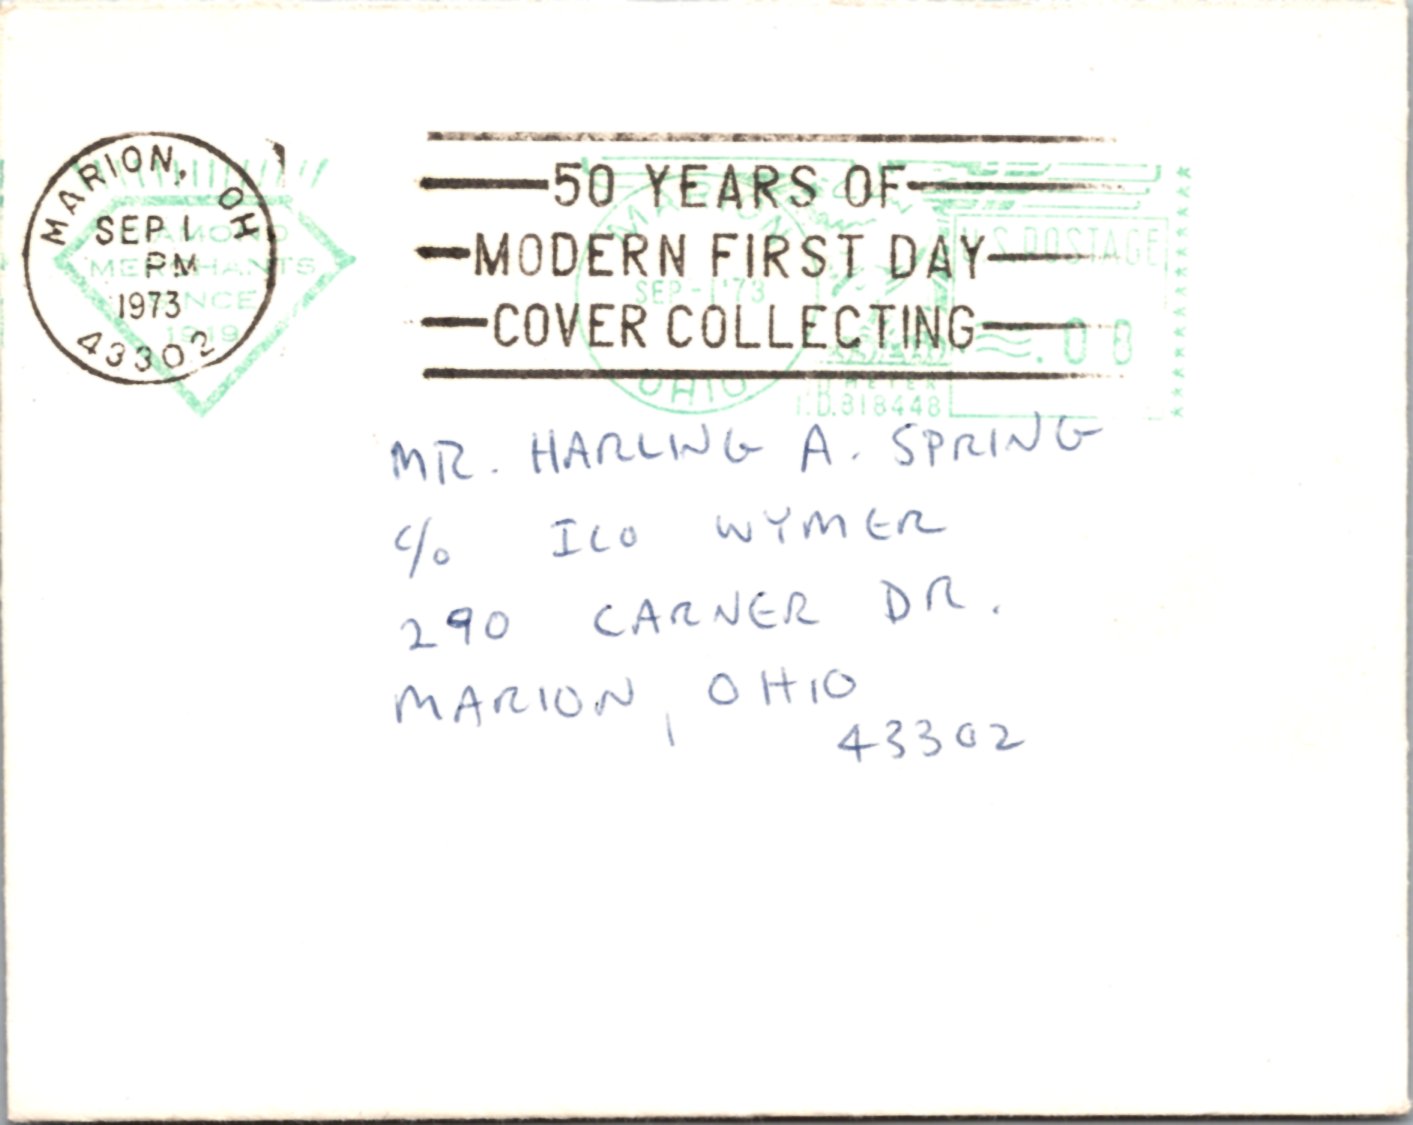 MARION, OH
SEP 1
PM
1973
43302
50 YEARS OF
MODERN FIRST DAY
COVER COLLECTING
MERCHANTS
SINCE
1919
MARION
SEP-1'73
OHIO
U.S. POSTAGE
.08
METER
I.D.818448
MR. HARLING A. SPRING
c/o ILO WYMER
290 CARNER DR.
MARION, OHIO
43302